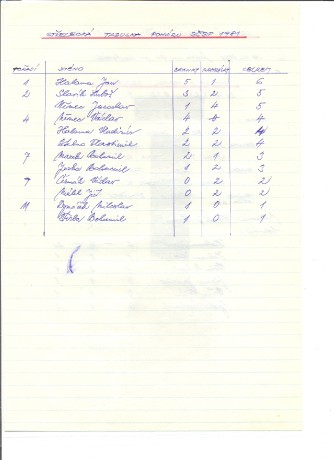 STŘELECKÁ TABULKA POHÁRU OŽSF 1981
POŘADÍ JMÉNO BRANKY NAHRÁVKY CELKEM
1 Hakena Jan 5 1 6
2 Slavík Luboš 3 2 5
Němec Jaroslav 1 4 5
4 Němec Václav 4 0 4
Hakena Vladimír 2 2 4
Vlastimil 2 2 4
7 Marek Bohumil 2 1 3
Bohumil 1 2 3
9 Václav 0 2 2
0 2 2
11 Miloslav 1 0 1
Bohumil 1 0 1